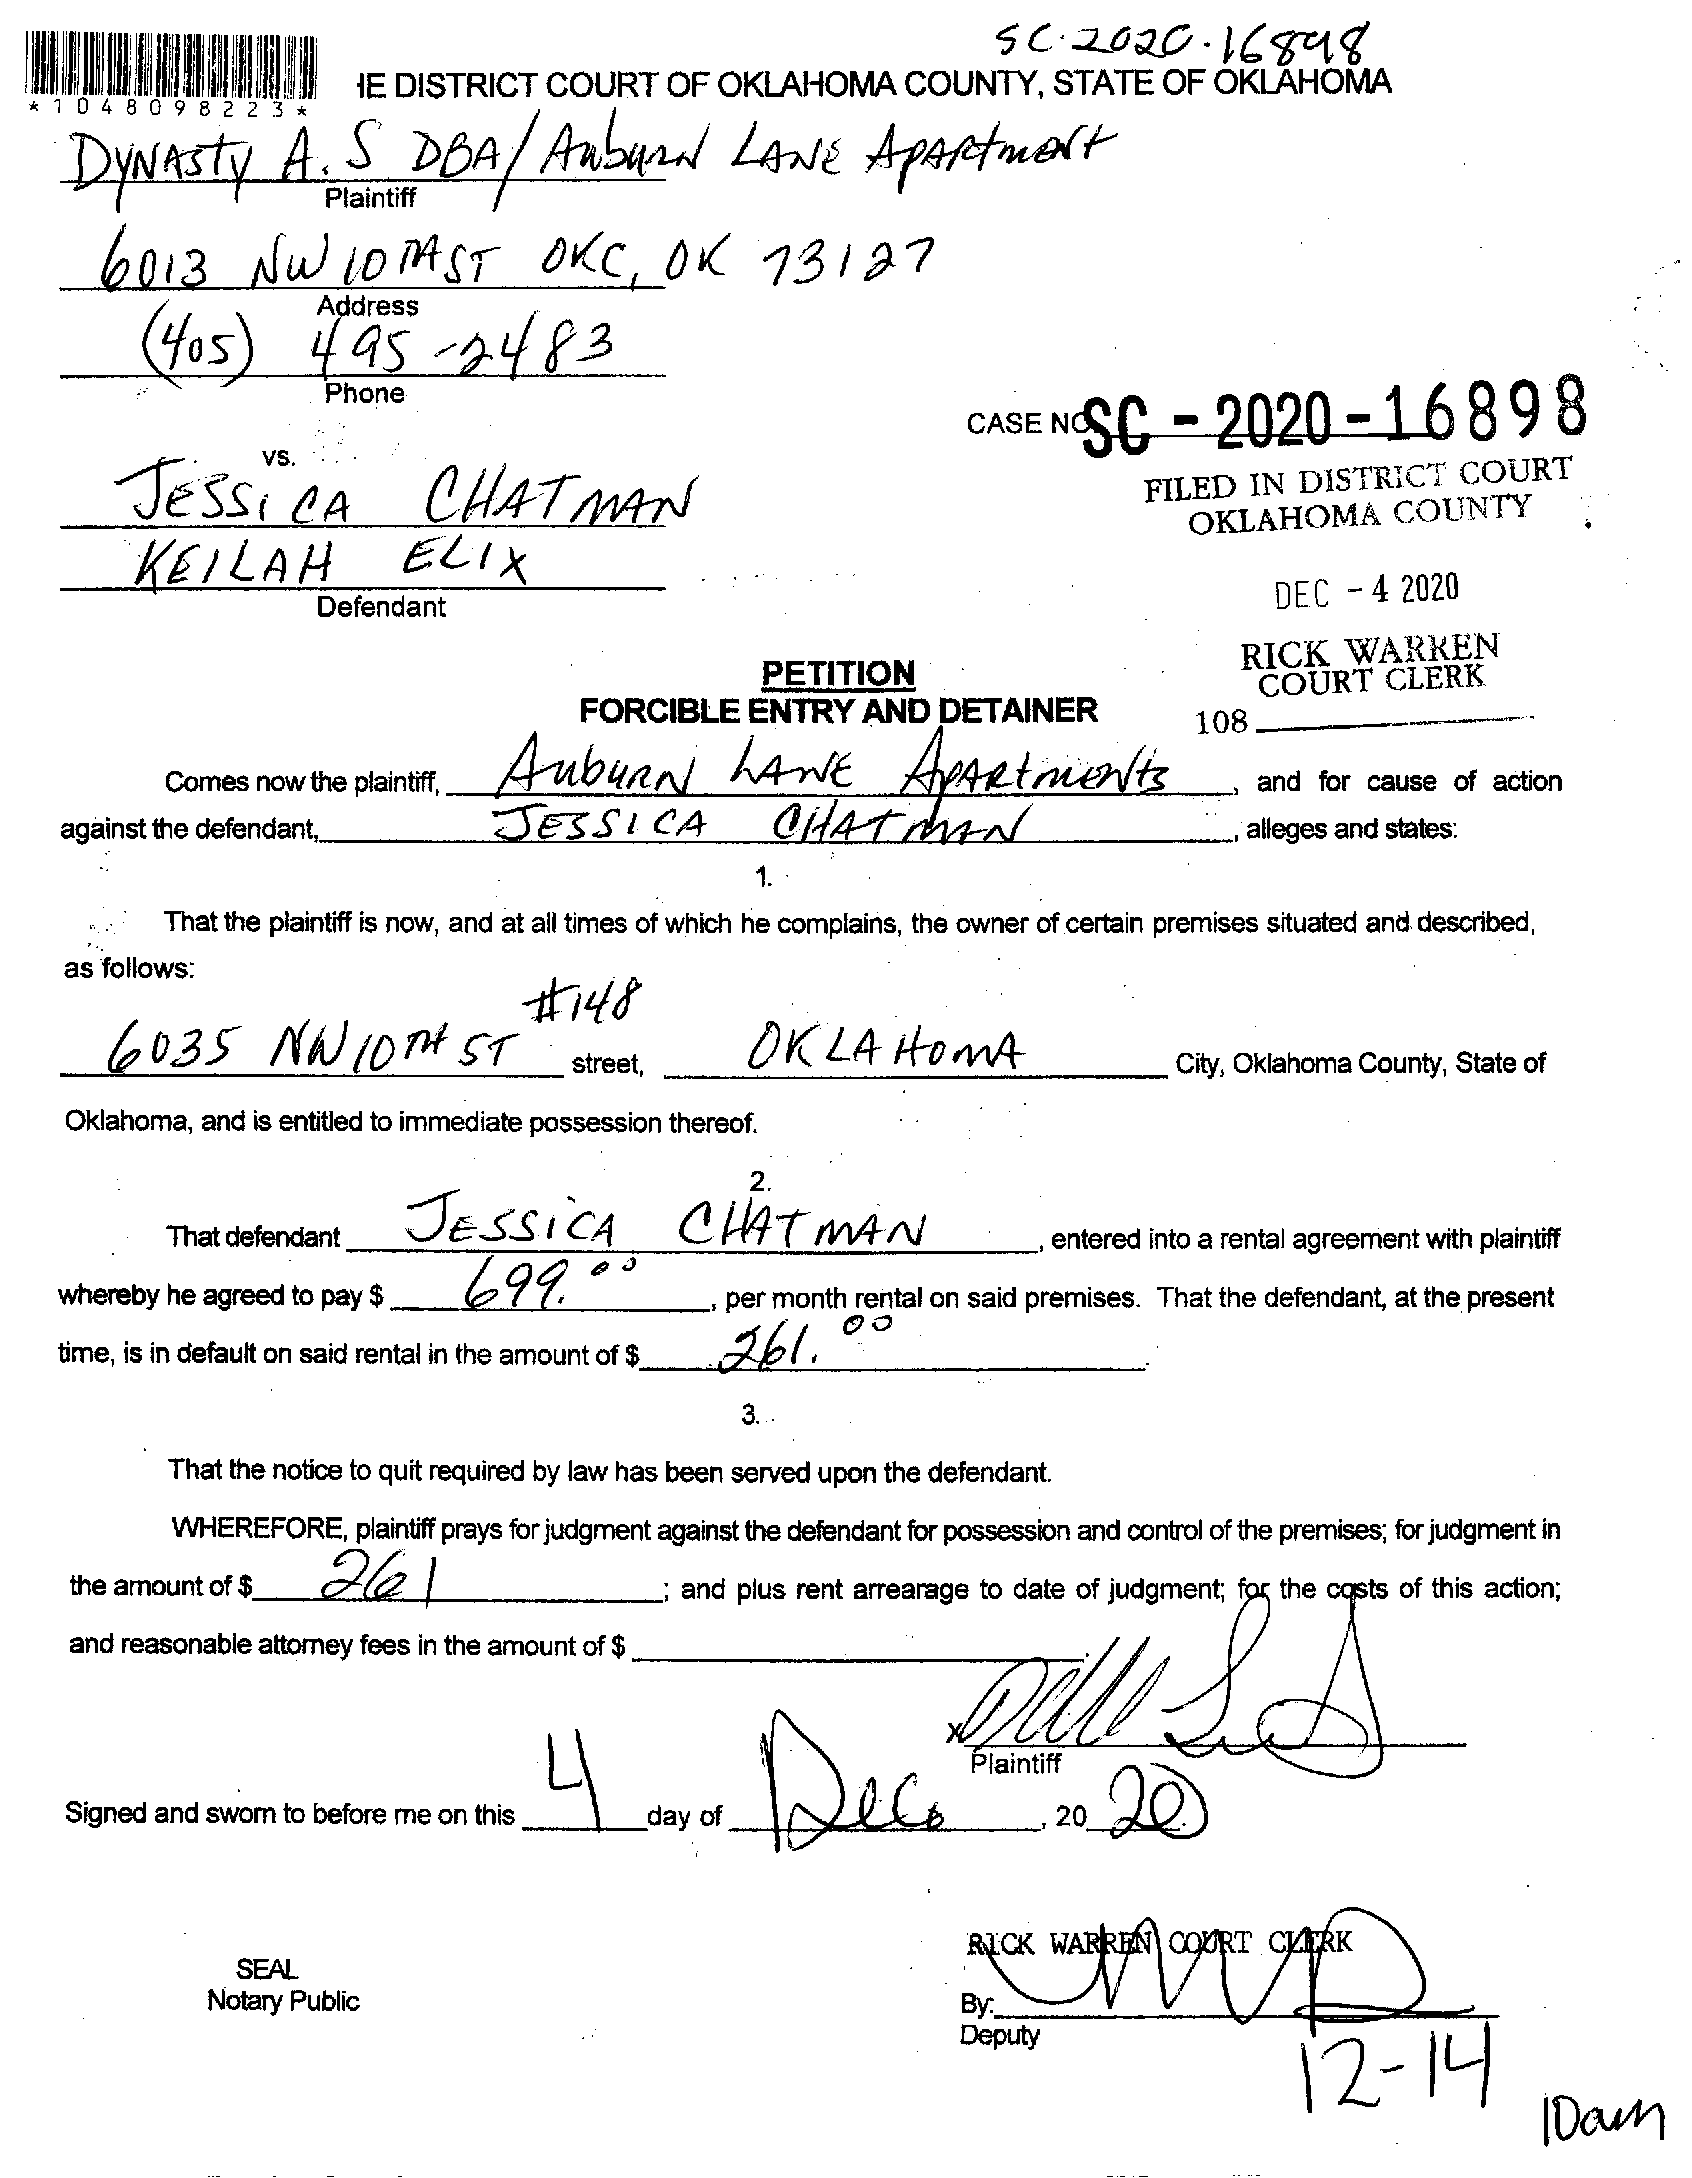 SC-2020-16898
IE DISTRICT COURT OF OKLAHOMA COUNTY, STATE OF OKLAHOMA
*1048098223*
DYNASTY A. S DBA/ Auburn LANE APARtmENt
Plaintiff
6013 NW 10TH ST OKC, OK 73127
Address
(405) 495-2483
Phone
CASE NO SC - 2020 - 16898
vs.
FILED IN DISTRICT COURT
OKLAHOMA COUNTY
JESSICA CHATMAN
KEILAH ELIX
Defendant
DEC - 4 2020
RICK WARREN
COURT CLERK
108
PETITION
FORCIBLE ENTRY AND DETAINER
Comes now the plaintiff, Auburn LANE APARtmENts, and for cause of action
against the defendant, JESSICA CHATMAN, alleges and states:
1.
That the plaintiff is now, and at all times of which he complains, the owner of certain premises situated and described,
as follows:
#148
6035 NW 10TH ST street, OKLAHOMA City, Oklahoma County, State of
Oklahoma, and is entitled to immediate possession thereof.
2.
That defendant JESSICA CHATMAN, entered into a rental agreement with plaintiff
whereby he agreed to pay $ 699.00, per month rental on said premises. That the defendant, at the present
time, is in default on said rental in the amount of $ 261.00.
3.
That the notice to quit required by law has been served upon the defendant.
WHEREFORE, plaintiff prays for judgment against the defendant for possession and control of the premises; for judgment in
the amount of $ 261; and plus rent arrearage to date of judgment; for the costs of this action;
and reasonable attorney fees in the amount of $
x
Plaintiff
Signed and sworn to before me on this 4 day of Dec, 20 20
RICK WARREN COURT CLERK
SEAL
Notary Public
By:
Deputy
12-14
10am